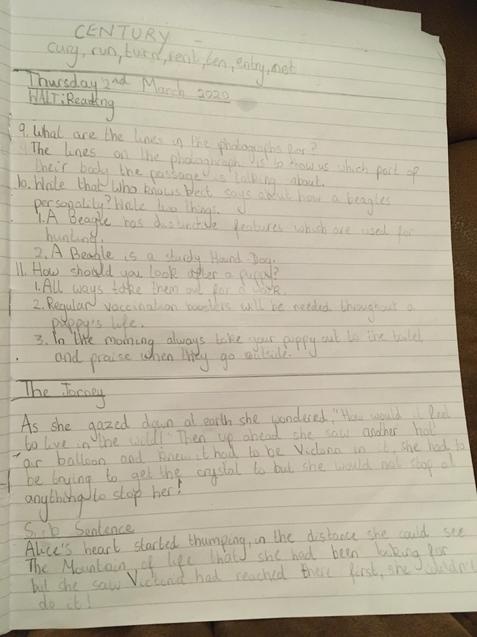 CENTURY
cury, run, turn, rent, ten, entry, net
Thursday 2nd March 2020
WALT: Reading
9. What are the lines in the photographs for?
The lines on the photograph is to show us which part of
their body the passage is talking about.
10. Write that Who knows best says about how a beagles
personality? Write two things.
1. A Beagle has distinctive features which are used for
hunting.
2. A Beagle is a sturdy Hound Dog.
11. How should you look after a puppy?
1. All ways take them out for a walk.
2. Regular vaccination boosters will be needed throughout a
puppy's life.
3. In the morning always take your puppy out to the toilet
and praise when they go outside.
The Jorney
As she gazed down at earth she wondered, "How would it feel
to live in the wild!" Then up ahead she saw another hot
air balloon and knew it had to be Victoria in it, she had to
be trying to get the crystal to but she would not stop at
anything to stop her!
S.b Sentence
Alice's heart started thumping, in the distance she could see
The Mountain of life that she had been looking for
but she saw Victoria had reached there first, she couldn't
do it!